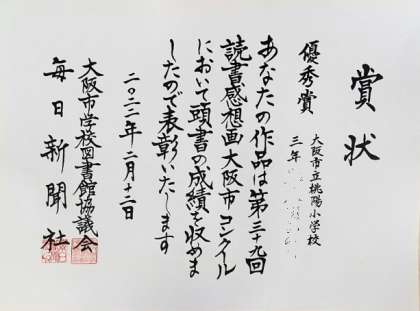 賞状
優秀賞
大阪市立桃陽小学校
三年
あなたの作品は第三十九回
読書感想画大阪市コンクール
において頭書の成績を収めま
したので表彰いたします
二〇二二年二月十二日
大阪市学校図書館協議会
毎日新聞社